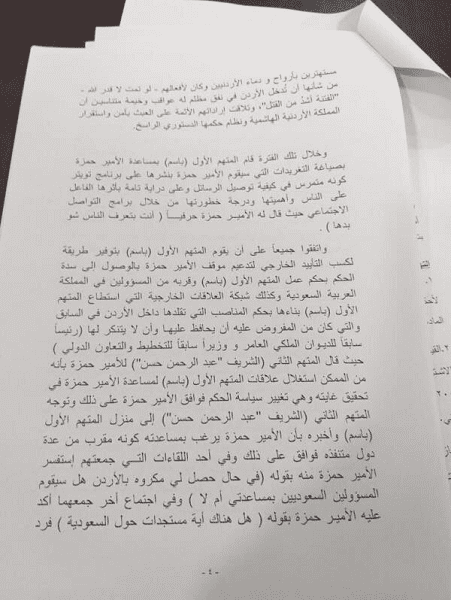 مستهترين بأرواح و دماء الأردنيين وكان لأفعالهم - لو تمت لا قدر الله -
من شأنها أن تُدخل الأردن في نفق مظلم له عواقب وخيمة متناسين أن
"الفتنة أشدُ من القتل"، وتلاقت إراداتهم الآثمة على العبث بأمن واستقرار
المملكة الأردنية الهاشمية ونظام حكمها الدستوري الراسخ.
وخلال تلك الفترة قام المتهم الأول (باسم) بمساعدة الأمير حمزة
بصياغة التغريدات التي سيقوم الأمير حمزة بنشرها على برنامج تويتر
كونه متمرس في كيفية توصيل الرسائل وعلى دراية تامة بأثرها الفاعل
على الناس وأهميتها ودرجة خطورتها من خلال برامج التواصل
الاجتماعي حيث قال له الأمير حمزة حرفياً ( أنت بتعرف الناس شو
بدها ) .
واتفقوا جميعاً على أن يقوم المتهم الأول (باسم) بتوفير طريقة
لكسب التأييد الخارجي لتدعيم موقف الأمير حمزة بالوصول إلى سدة
الحكم بحكم عمل المتهم الأول (باسم) وقربه من المسؤولين في المملكة
العربية السعودية وكذلك شبكة العلاقات الخارجية التي استطاع المتهم
الأول (باسم) بناءها بحكم المناصب التي تقلدها داخل الأردن في السابق
والتي كان من المفروض عليه أن يحافظ عليها وأن لا يتنكر لها (رئيساً
سابقاً للديوان الملكي العامر و وزيراً سابقاً للتخطيط والتعاون الدولي )
حيث قال المتهم الثاني (الشريف "عبد الرحمن حسن") للأمير حمزة بأنه
من الممكن استغلال علاقات المتهم الأول (باسم) لمساعدة الأمير حمزة في
تحقيق غايته وهي تغيير سياسة الحكم فوافق الأمير حمزة على ذلك وتوجه
المتهم الثاني (الشريف "عبد الرحمن حسن") إلى منزل المتهم الأول
(باسم) وأخبره بأن الأمير حمزة يرغب بمساعدته كونه مقرب من عدة
دول متنفذه فوافق على ذلك وفي أحد اللقاءات التي جمعتهم إستفسر
الأمير حمزة منه بقوله (في حال حصل لي مكروه بالأردن هل سيقوم
المسؤولين السعوديين بمساعدتي أم لا ) وفي اجتماع أخر جمعهما أكد
عليه الأمير حمزة بقوله ( هل هناك أية مستجدات حول السعودية ) فرد
- ٤ -